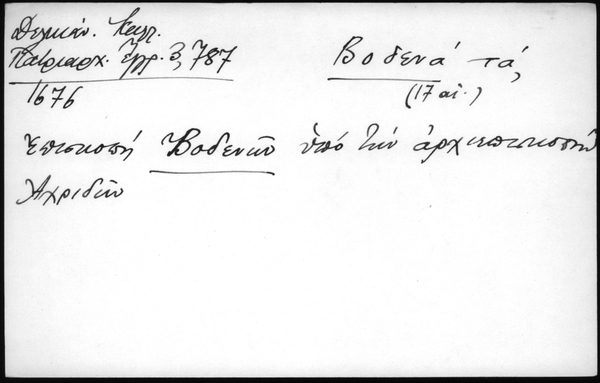 Δελικάν. Καλλ.
Πατριαρχ. Ἔγγρ. 3, 787
1676
Βοδενά τά,
(17 αἰ.)
Ἐπισκοπή Βοδενῶν ὑπό τήν ἀρχιεπισκοπήν
Ἀχριδῶν